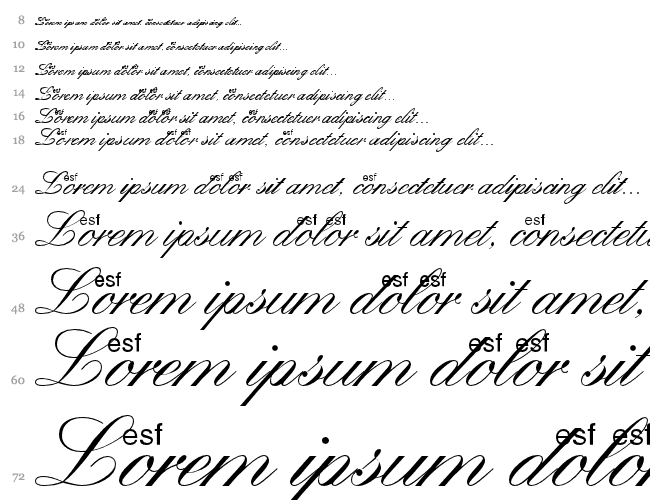 8 Lorem ipsum dolor sit amet, consectetuer adipiscing elit...
10 Lorem ipsum dolor sit amet, consectetuer adipiscing elit...
12 Lorem ipsum dolor sit amet, consectetuer adipiscing elit...
14 Lorem ipsum dolor sit amet, consectetuer adipiscing elit...
16 Lorem ipsum dolor sit amet, consectetuer adipiscing elit...
esf esf esf esf
18 Lorem ipsum dolor sit amet, consectetuer adipiscing elit...
esf esf esf esf
24 Lorem ipsum dolor sit amet, consectetuer adipiscing elit...
esf esf esf esf
36 Lorem ipsum dolor sit amet, consectetu
esf esf esf
48 Lorem ipsum dolor sit amet,
esf esf esf
60 Lorem ipsum dolor sit
esf esf esf
72 Lorem ipsum dolo